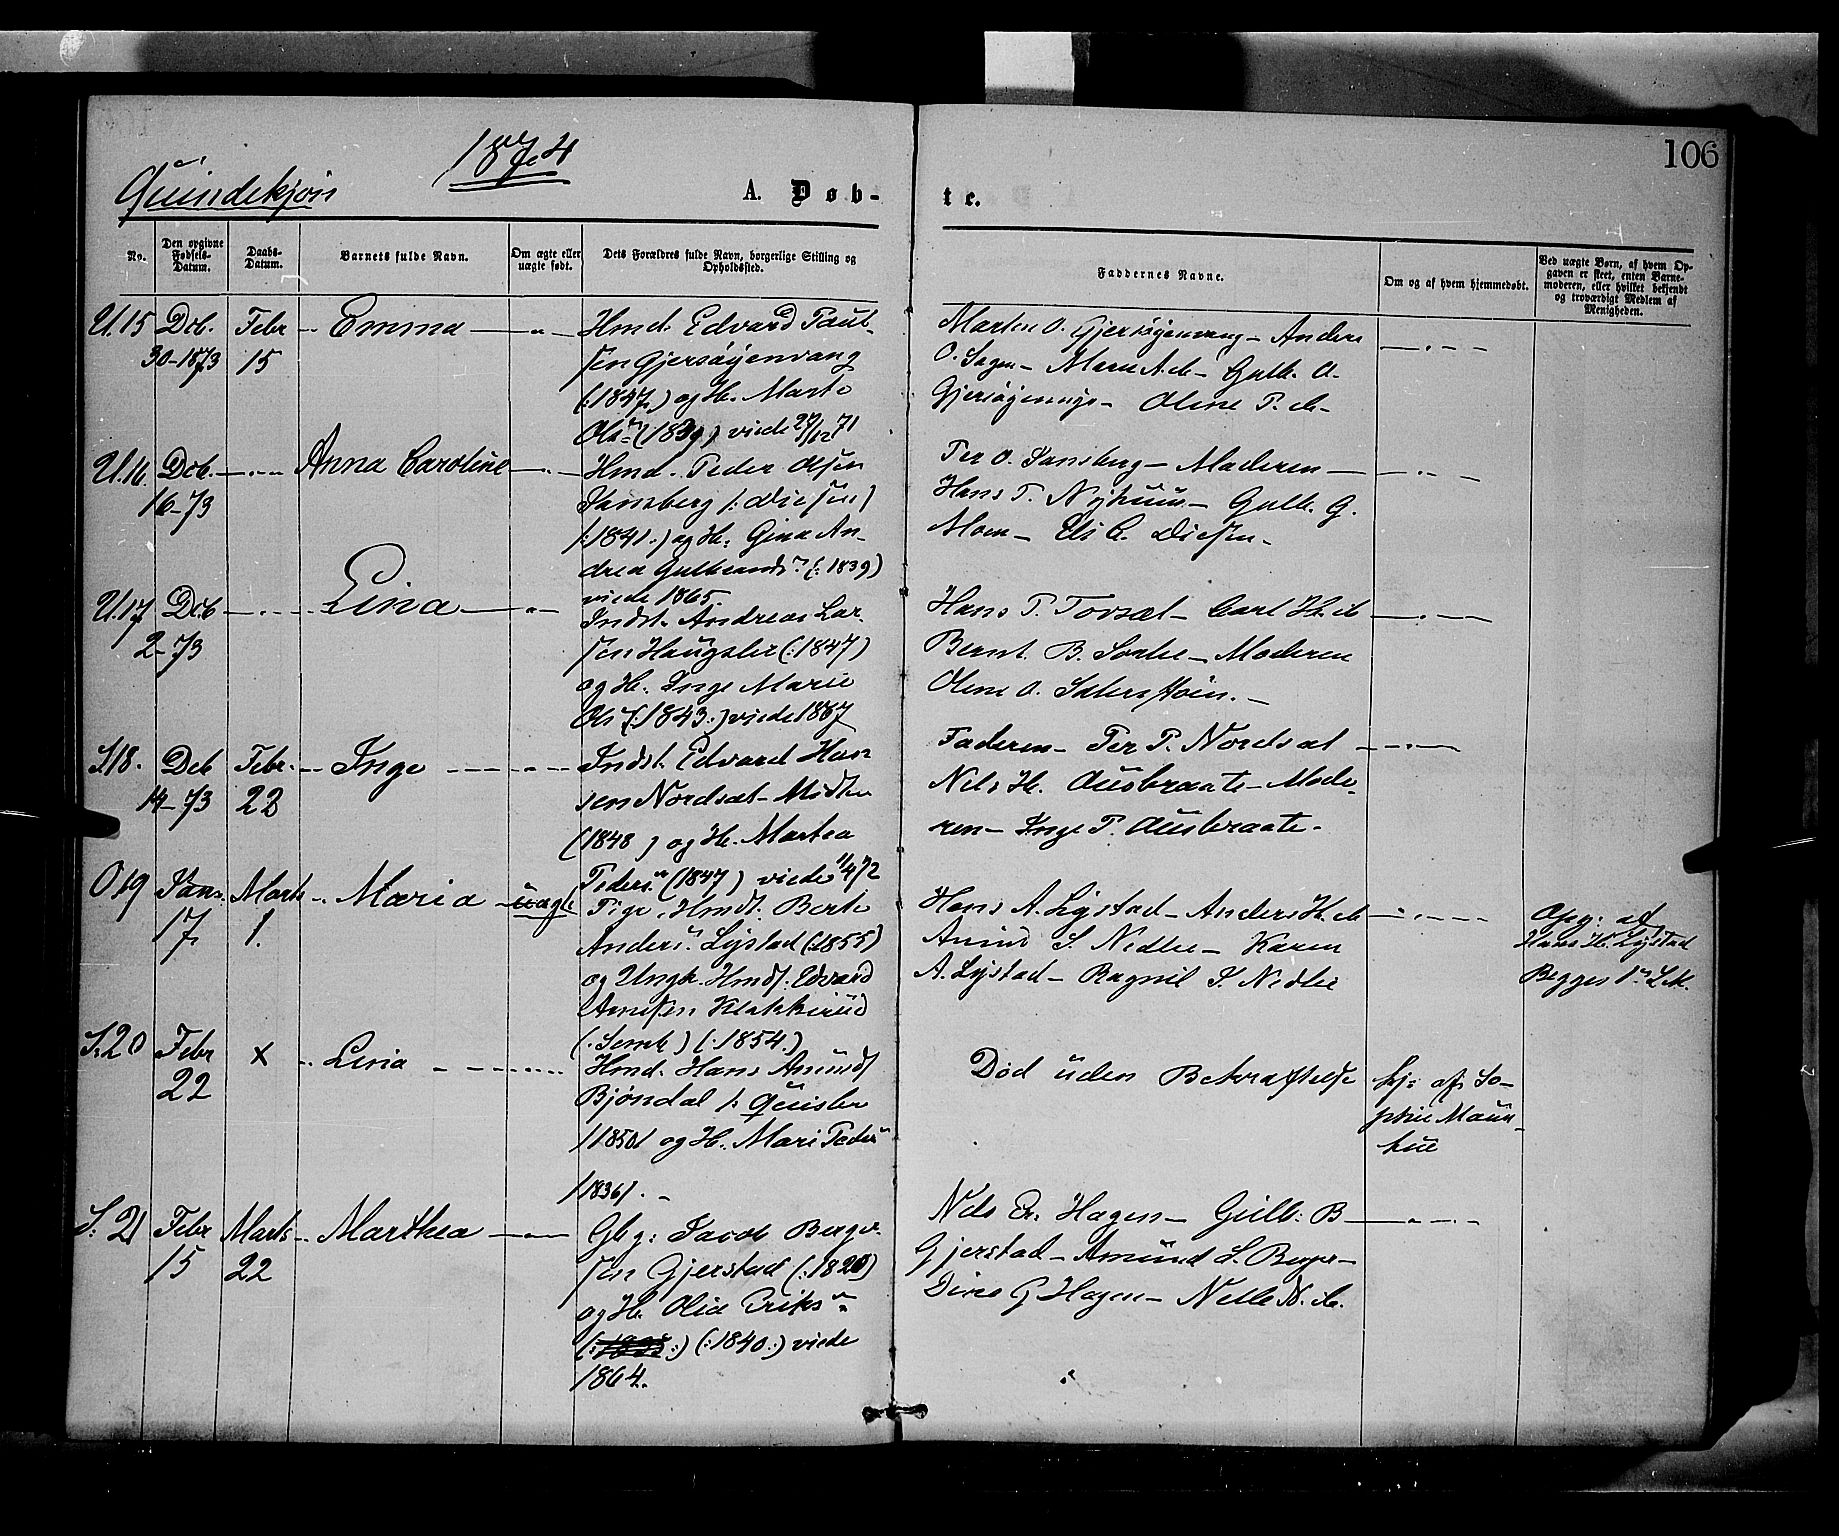 106
1874
Quindekjøn
A. Døb-
te.
No.
Den opgivne Fødsels-Datum.
Daabs-Datum.
Barnets fulde Navn.
Om ægte eller uægte født.
Dets Forældres fulde Navn, borgerlige Stilling og Opholdssted.
Faddernes Navne.
Om og af hvem hjemmedøbt.
Ved uægte Børn, af hvem Opgaven er skeet, enten Barnemoderen, eller hvilket bekjendt og troværdigt Medlem af Menigheden.
U.15 Dcb. Febr Emma Hmd. Edvard Paul-
30-1873 15 sen Gjersøyenvang
(:1847) og H. Marte
Ols (1839) viede 29/12 71
Marten O. Gjersøyenvang - Anders
O. Sagen - Maren A. - Gulb. O.
Olene P.
U.16. Dcb. Anna Caroline Hmd. Peder Olsen
16-73 (: Diesen)
(:1841.) og H. Gina An-
drea Gulbrands (:1839)
viede 1865.
Per O. - Moderen
Hans P. Nyhuus - Gulb. G.
Moen - Diesen -
U.17 Dcb Lina Indst. Andreas Lar-
2-73 sen Haugslie (:1847)
og H. Inge Marie
Ols (:1843.) viede 1867
Hans P. Torsæt - Carl H.
Bernt B. - Moderen
Olene O.
I.18. Dcb Febr. Inge Indst. Edvard Han
14-73 22 sen Nordsæt-
(1848) og H. Martea
Peders (1847) viede 1/4 72
Faderen - Per P. Nordsæt
Nils H. Ausbraate - Mode-
ren - Inge P. Ausbraate -
O.19 Jan. Marts Maria uægte Pige, Hmdt. Berte
17 1. Anders Lystad (:1855)
og Ungk. Hmds. Edvard
Arnesen Klakkerud
(:Semb) (:1854.)
Hans A. Lystad - Anders H.
S. Nedlie - Karen
A. Lystad - Ragnil S. Nedlie
Opg. af
Hans H. Lystad
Begges 1ste L.M.
S.20 Febr x Lina Hmd. Hans Amunds
22 Bjøndal (: Quisler
(1850) og H. Mari Peders
(1836). -
Død uden Bekræftelse
hj. af So-
phie Maur-
S.21 Febr Marts Marthea Gbg: Jacob Berger-
15 22 sen Gjerstad (:1820)
og H. Olia Eriks
(:1840:) viede
1864.
Nils Er. Hagen - Gulb: B
Gjerstad - Amund L. Berger-
G Hagen - N.